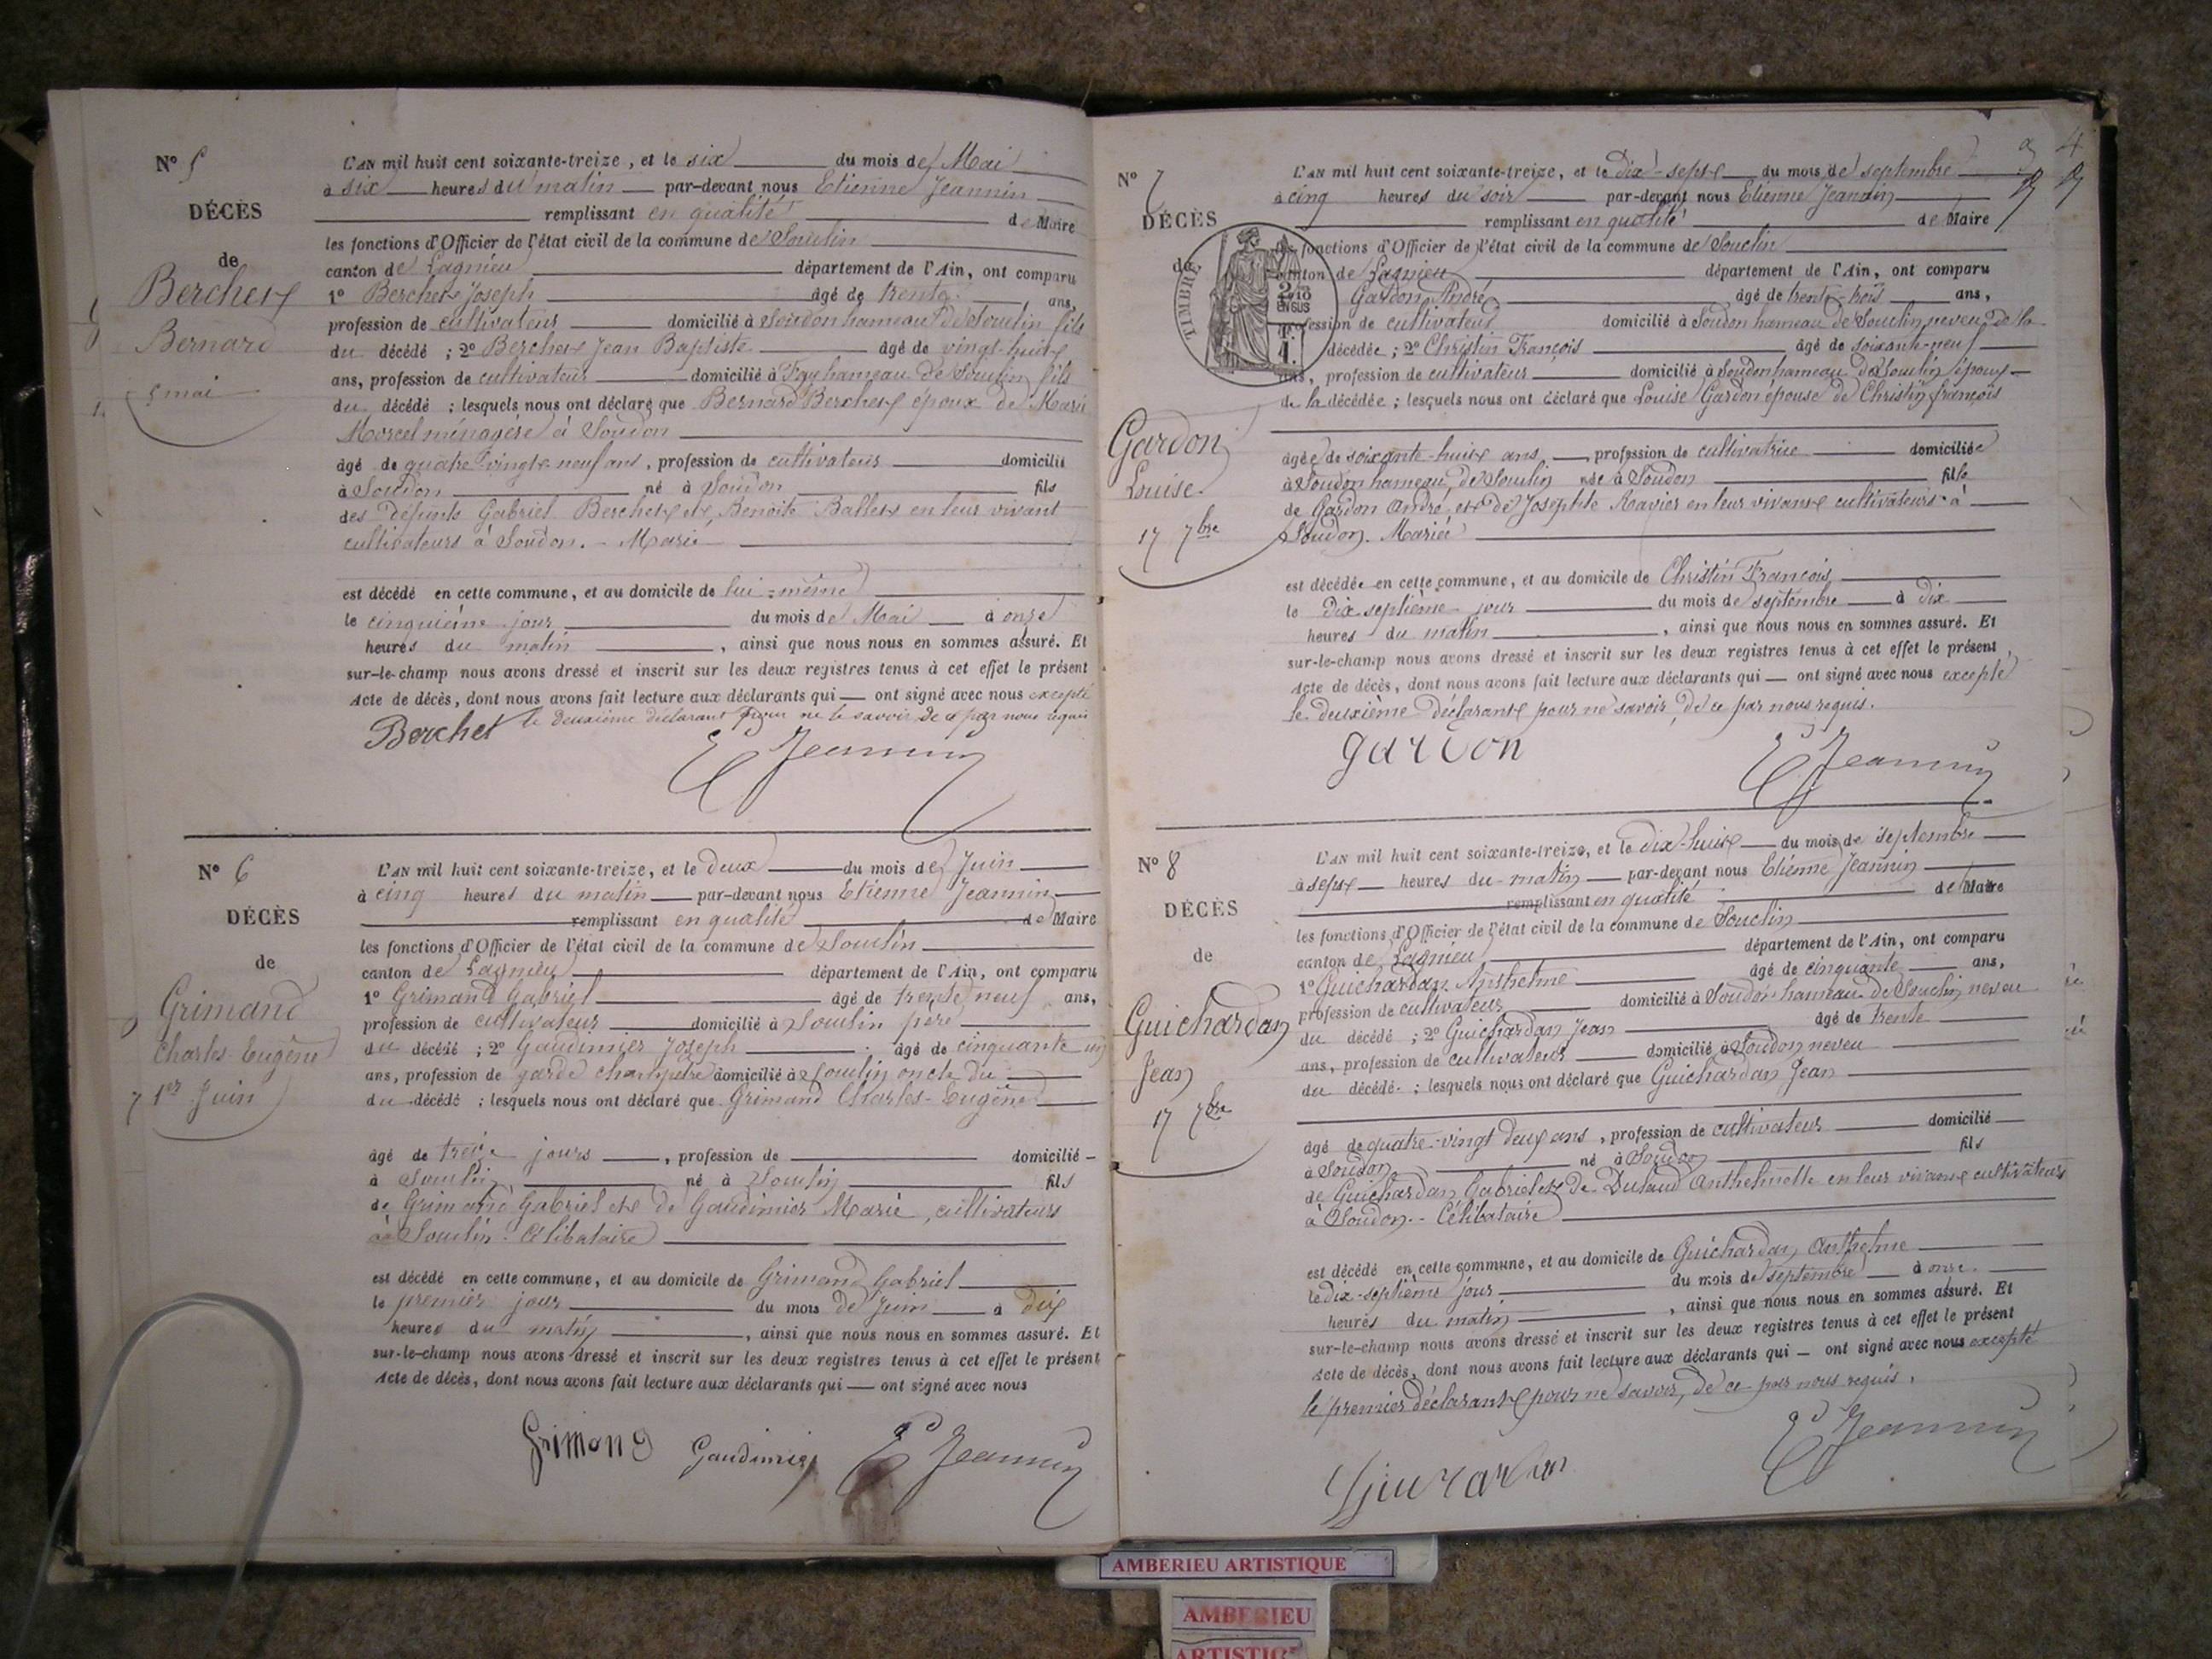 N° 5
DÉCÈS
de
Berchet
Bernard
5 mai
L'AN mil huit cent soixante-treize, et le six du mois de Mai
à six heures du matin par-devant nous Etienne Jeannin
remplissant en qualité de Maire
les fonctions d'Officier de l'état civil de la commune de Souclin
canton de Lagnieu département de l'Ain, ont comparu
1° Berchet Joseph âgé de trente ans,
profession de cultivateur domicilié à Soudon hameau de Souclin fils
du décédé ; 2° Berchet Jean Baptiste âgé de vingt-huit
ans, profession de cultivateur domicilié à Fay hameau de Souclin fils
du décédé ; lesquels nous ont déclaré que Bernard Berchet époux de Marie
Morcel ménagère à Soudon
âgé de quatre vingt neuf ans, profession de cultivateur domicilié
à Soudon né à Soudon fils
des défunts Gabriel Berchet et Benoite Ballet en leur vivant
cultivateurs à Soudon. - Marié
est décédé en cette commune, et au domicile de lui-même
le cinquième jour du mois de Mai à onze
heures du matin, ainsi que nous nous en sommes assuré. Et
sur-le-champ nous avons dressé et inscrit sur les deux registres tenus à cet effet le présent
Acte de décès, dont nous avons fait lecture aux déclarants qui ont signé avec nous excepté
le deuxième déclarant pour ne le savoir de ce par nous requis
Berchet
E Jeannin
N° 6
DÉCÈS
de
Grimand
Charles-Eugène
1er Juin
L'AN mil huit cent soixante-treize, et le deux du mois de Juin
à cinq heures du matin par-devant nous Etienne Jeannin
remplissant en qualité de Maire
les fonctions d'Officier de l'état civil de la commune de Souclin
canton de Lagnieu département de l'Ain, ont comparu
1° Grimand Gabriel âgé de trente neuf ans,
profession de cultivateur domicilié à Souclin père
du décédé ; 2° Gaudimier Joseph âgé de cinquante un
ans, profession de garde champêtre domicilié à Souclin oncle du
du décédé ; lesquels nous ont déclaré que Grimand Charles-Eugène
âgé de treize jours, profession de domicilié
à Souclin né à Souclin fils
de Grimand Gabriel et de Gaudimier Marie, cultivateurs
à Souclin. Célibataire
est décédé en cette commune, et au domicile de Grimand Gabriel
le premier jour du mois de Juin à dix
heures du matin, ainsi que nous nous en sommes assuré. Et
sur-le-champ nous avons dressé et inscrit sur les deux registres tenus à cet effet le présent
Acte de décès, dont nous avons fait lecture aux déclarants qui ont signé avec nous
Grimand Gaudimier E Jeannin
4
N° 7
DÉCÈS
de
TIMBRE
2/10 EN SUS
Gardon
Louise
17 7bre
L'AN mil huit cent soixante-treize, et le dix-sept du mois de septembre
à cinq heures du soir par-devant nous Etienne Jeannin
remplissant en qualité de Maire
fonctions d'Officier de l'état civil de la commune de Souclin
canton de Lagnieu département de l'Ain, ont comparu
Gardon André âgé de trente-trois ans,
profession de cultivateur domicilié à Soudon hameau de Souclin neveu de la
décédée ; 2° Christin François âgé de soixante-neuf
ans, profession de cultivateur domicilié à Soudon hameau de Souclin époux
de la décédée ; lesquels nous ont déclaré que Louise Gardon épouse de Christin françois
âgée de soixante-huit ans, profession de cultivatrice domiciliée
à Soudon hameau de Souclin née à Soudon fille
de Gardon André et de Josephte Ravier en leur vivant cultivateurs à
Soudon. Mariée
est décédée en cette commune, et au domicile de Christin François
le dix septième jour du mois de septembre à dix
heures du matin, ainsi que nous nous en sommes assuré. Et
sur-le-champ nous avons dressé et inscrit sur les deux registres tenus à cet effet le présent
Acte de décès, dont nous avons fait lecture aux déclarants qui ont signé avec nous excepté
le deuxième déclarant pour ne savoir, de ce par nous requis.
gardon
E Jeannin
N° 8
DÉCÈS
de
Guichardan
Jean
17 7bre
L'AN mil huit cent soixante-treize, et le dix-huit du mois de septembre
à sept heures du matin par-devant nous Etienne Jeannin
remplissant en qualité de Maire
les fonctions d'Officier de l'état civil de la commune de Souclin
canton de Lagnieu département de l'Ain, ont comparu
1° Guichardan Anthelme âgé de cinquante ans,
profession de cultivateur domicilié à Soudon hameau de Souclin neveu
du décédé ; 2° Guichardan Jean âgé de trente
ans, profession de cultivateur domicilié à Soudon neveu
du décédé ; lesquels nous ont déclaré que Guichardan Jean
âgé de quatre-vingt deux ans, profession de cultivateur domicilié
à Soudon né à Soudon fils
de Guichardan Gabriel et de Dulaud Anthelmette en leur vivant cultivateurs
à Soudon. - Célibataire
est décédé en cette commune, et au domicile de Guichardan Anthelme
le dix-septième jour du mois de septembre à onze
heures du matin, ainsi que nous nous en sommes assuré. Et
sur-le-champ nous avons dressé et inscrit sur les deux registres tenus à cet effet le présent
Acte de décès, dont nous avons fait lecture aux déclarants qui ont signé avec nous excepté
le premier déclarant pour ne savoir, de ce par nous requis.
E Jeannin
AMBERIEU ARTISTIQUE
AMBERIEU